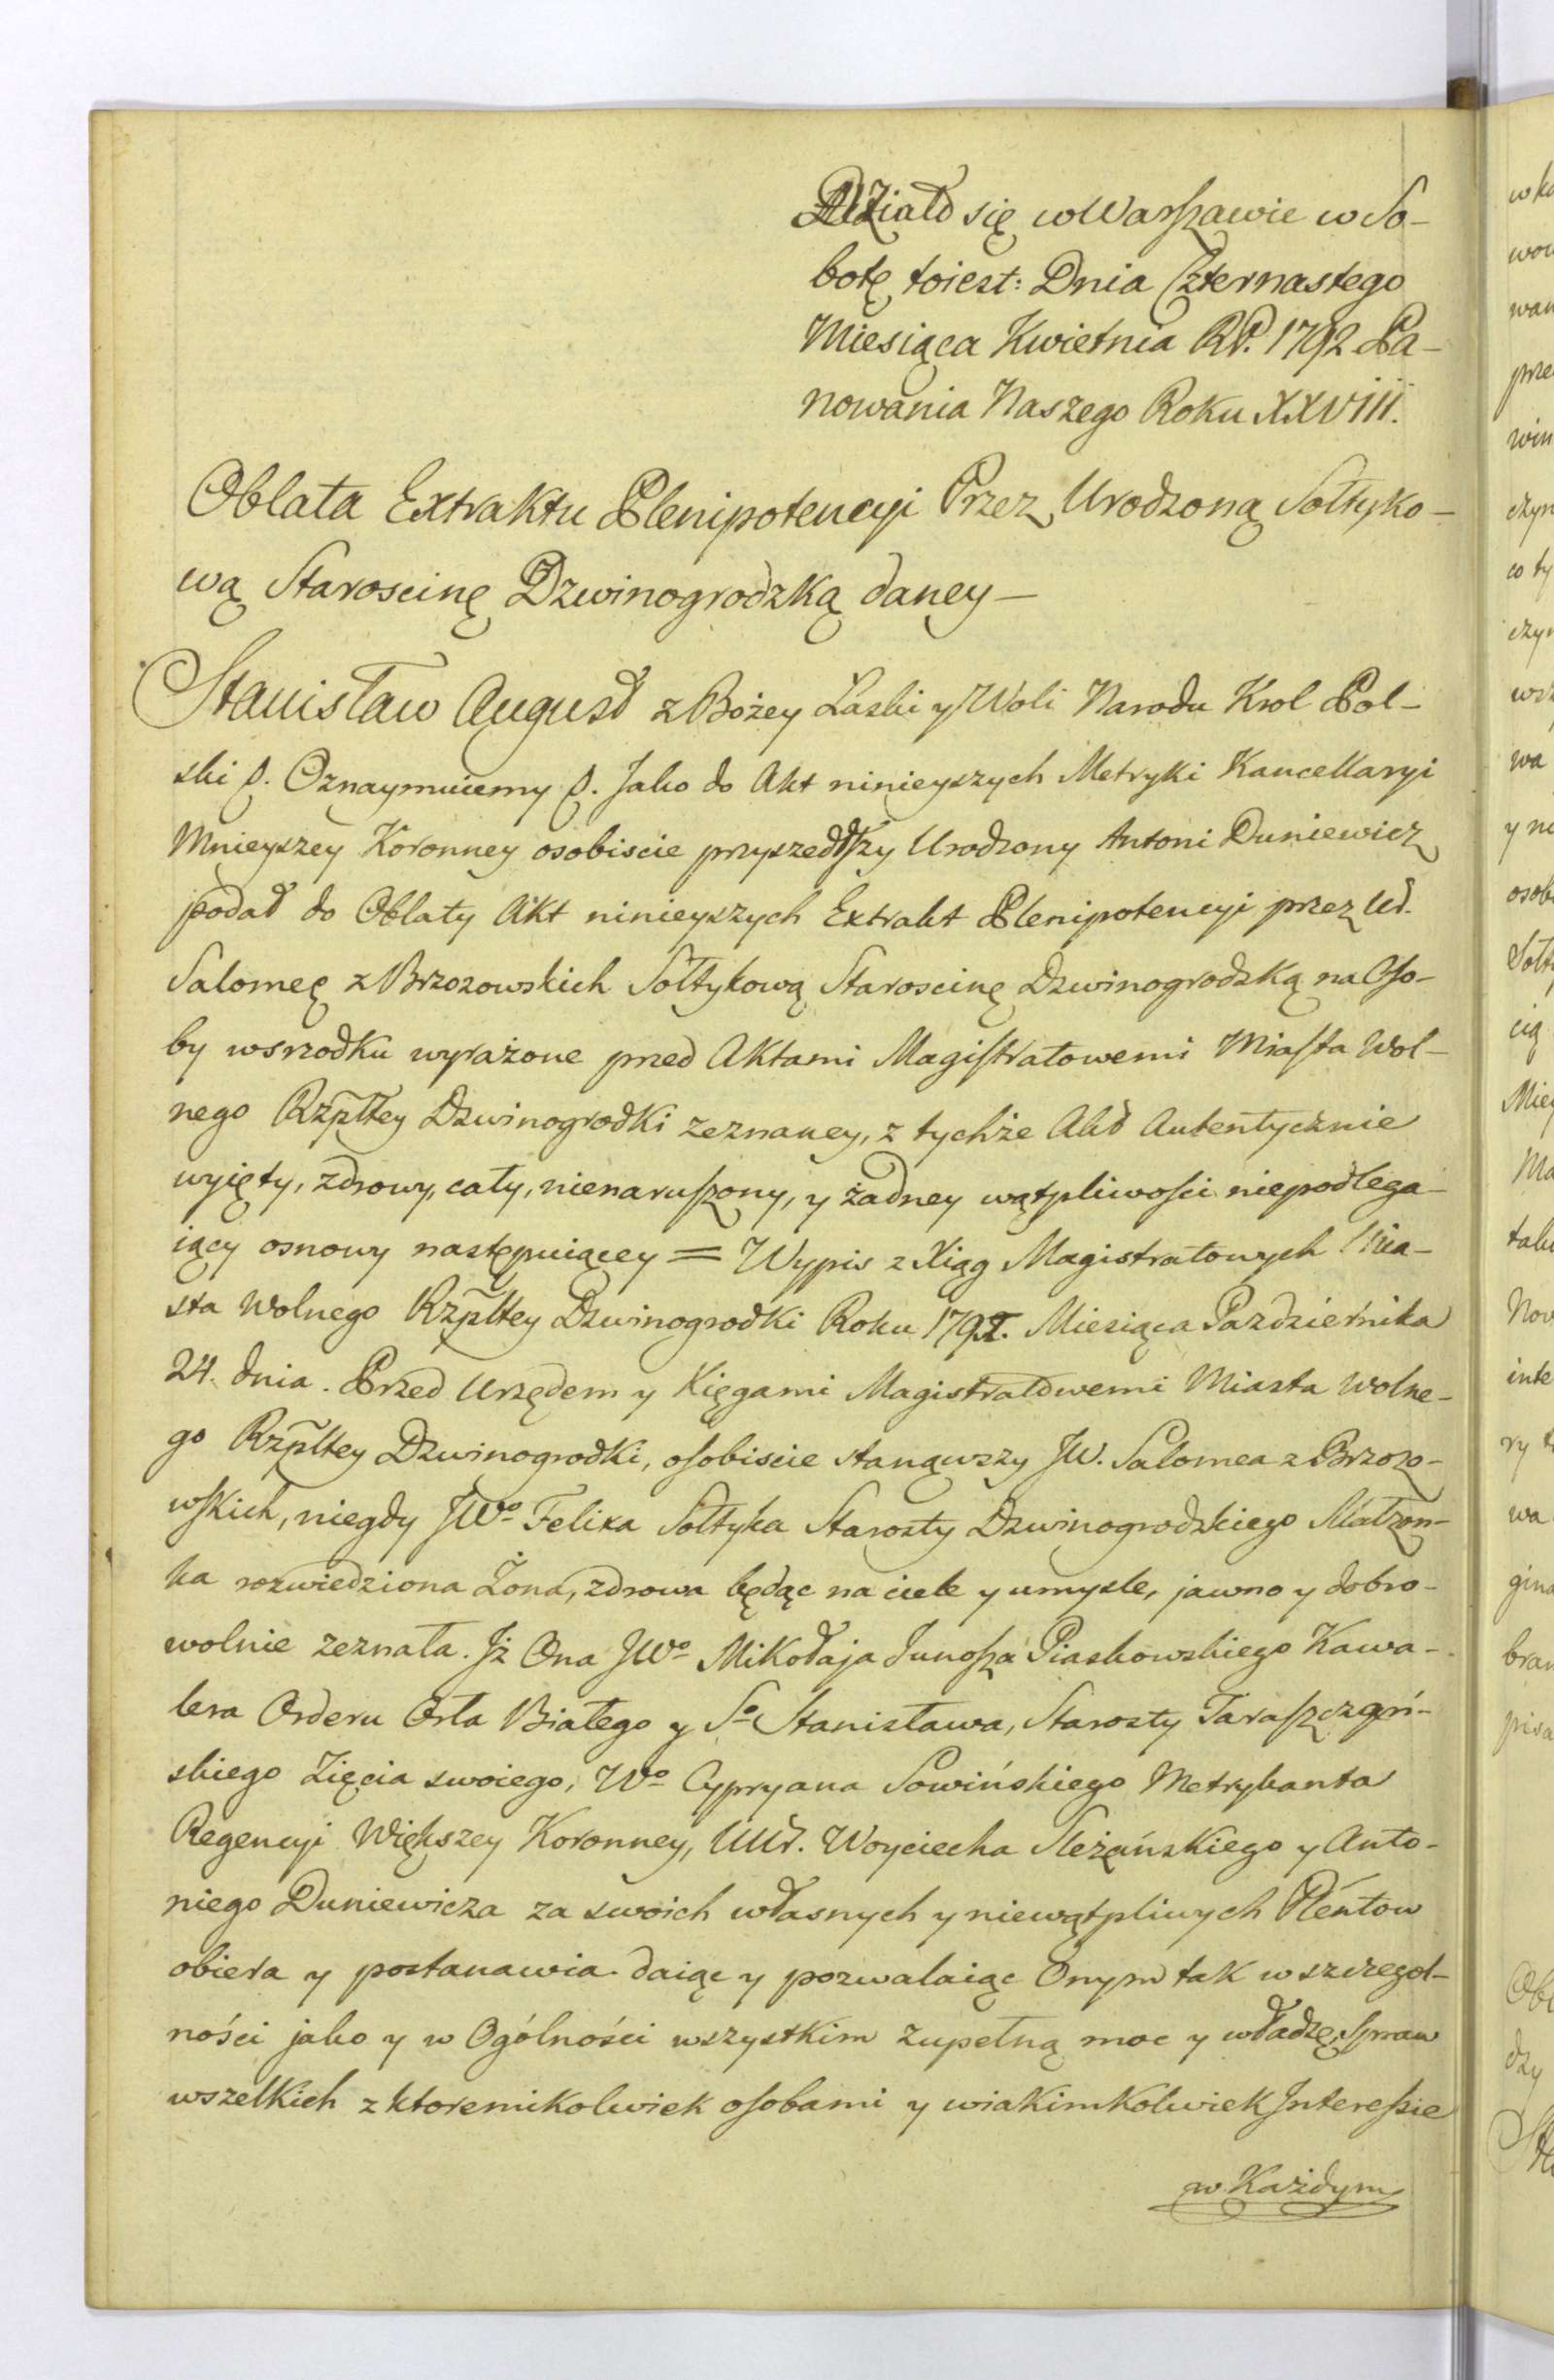 Działo się w Warszawie w So-
botę toiest: Dnia Czternastego
Miesiąca Kwietnia RP. 1792 Pa-
nowania Naszego Roku XXVIII.
Oblata Extraktu Plenipotencyi Przez Urodzoną Sołtyko-
wą Staroscinę Dzwinogrodzką daney —
Stanisław August z Bożey Łaski y Woli Narodu Krol Pol-
ski &. Oznaymuiemy &. Jako do Akt ninieyszych Metryki Kancellaryi
Mnieyszey Koronney osobiscie przyszedłszy Urodzony Antoni Duniewicz
podał do Oblaty Akt ninieyszych Extrakt Plenipotencyi przez Ur.
Salomeę z Brzozowskich Sołtykową Staroscinę Dzwinogrodzką na Oso-
by wsrzodku wyrażone przed Aktami Magistratowemi Miasta Wol-
nego Rzpltey Dzwinogrodki zeznaney, z tychże Akt Autentycznie
wyięty, zdrowy, cały, nienaruszony, y żadney wątpliwości niepodlega-
iący osnowy następuiącey = Wypis z Xiąg Magistratowych Mia-
sta Wolnego Rzpltey Dzwinogrodki Roku 1791. Miesiąca Pazdziernika
24. dnia. Przed Urzędem y Xięgami Magistratowemi Miasta Wolne-
go Rzpltey Dzwinogrodki, osobiscie stanąwszy JW. Salomea z Brzozo-
wskich, niegdy JWo Felixa Sołtyka Starosty Dzwinogrodzkiego Małżon-
ka rozwiedziona Żona, zdrowa będąc na ciele y umysle, jawno y dobro-
wolnie zeznała. Jż Ona JWo Mikołaja Junosza Piaskowskiego Kawa-
lera Orderu Orła Białego y So Stanisława, Starosty Taraszczyń-
skiego Zięcia swoiego, Wo Cypryana Sowińskiego Metrykanta
Regencyi Większey Koronney, UUr. Woyciecha Sleżańskiego y Anto-
niego Duniewicza za swoich własnych y niewątpliwych Plentow
obiera y postanawia daiąc y pozwalaiąc Onym tak w szczegol-
ności jako y w Ogólności wszystkim zupełną moc y władzę, Spraw
wszelkich z ktoremikolwiek osobami y wiakimkolwiek Interessie
w Każdym